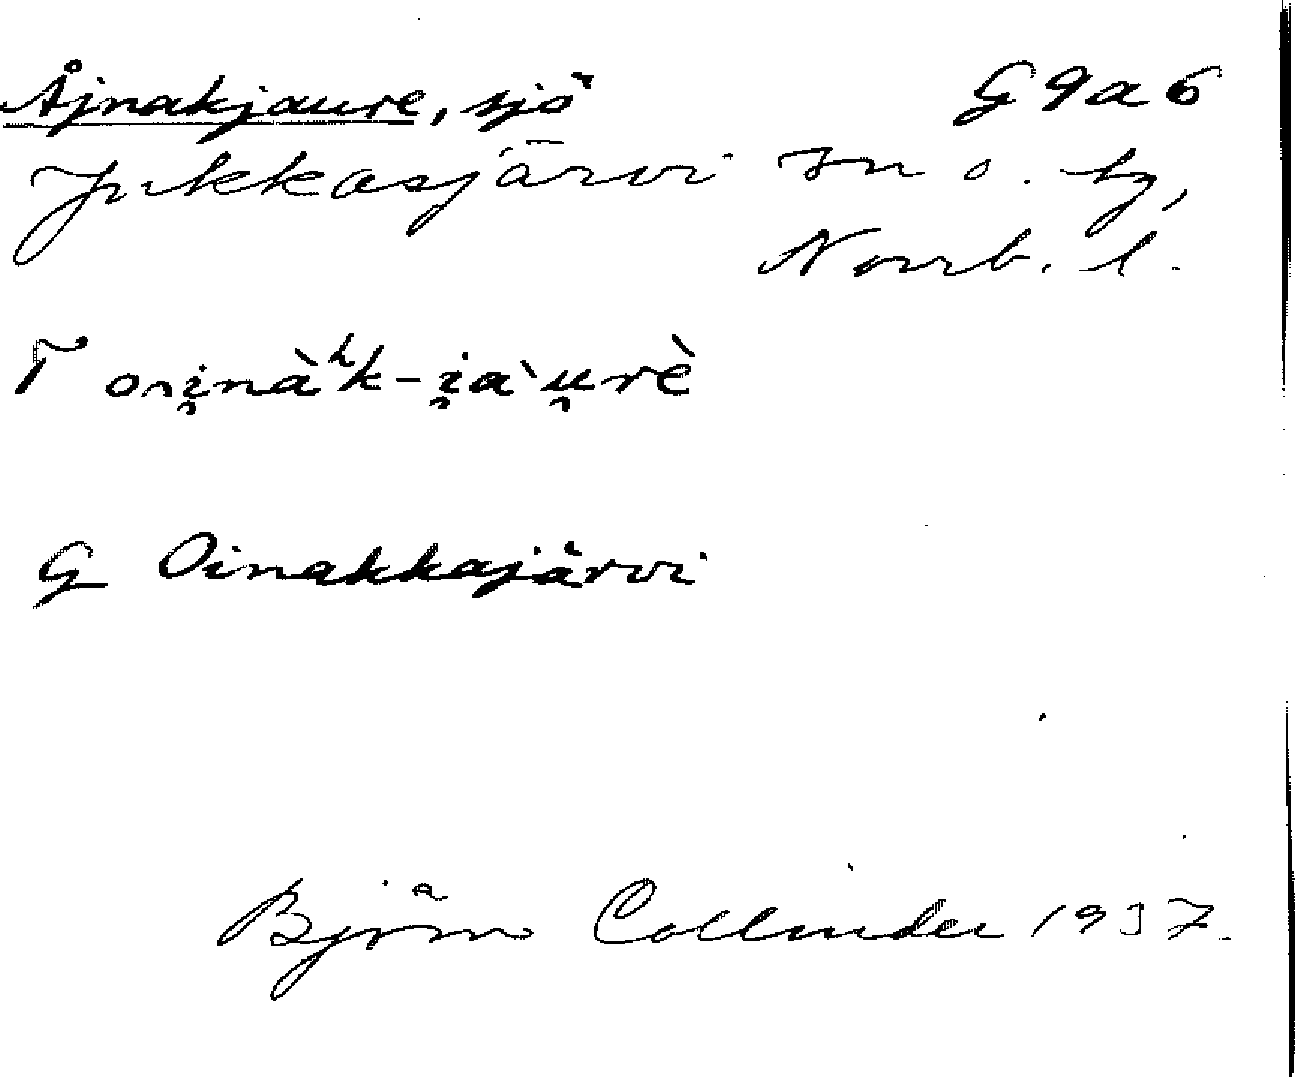 Åjnakjaure, sjö G9a6
Jukkasjärvi sn o. tg,
Norrb. l.
T oi̯nàʰk-i̯a`u̯rè
G Oinakkajärvi
Björn Collinder 1937.